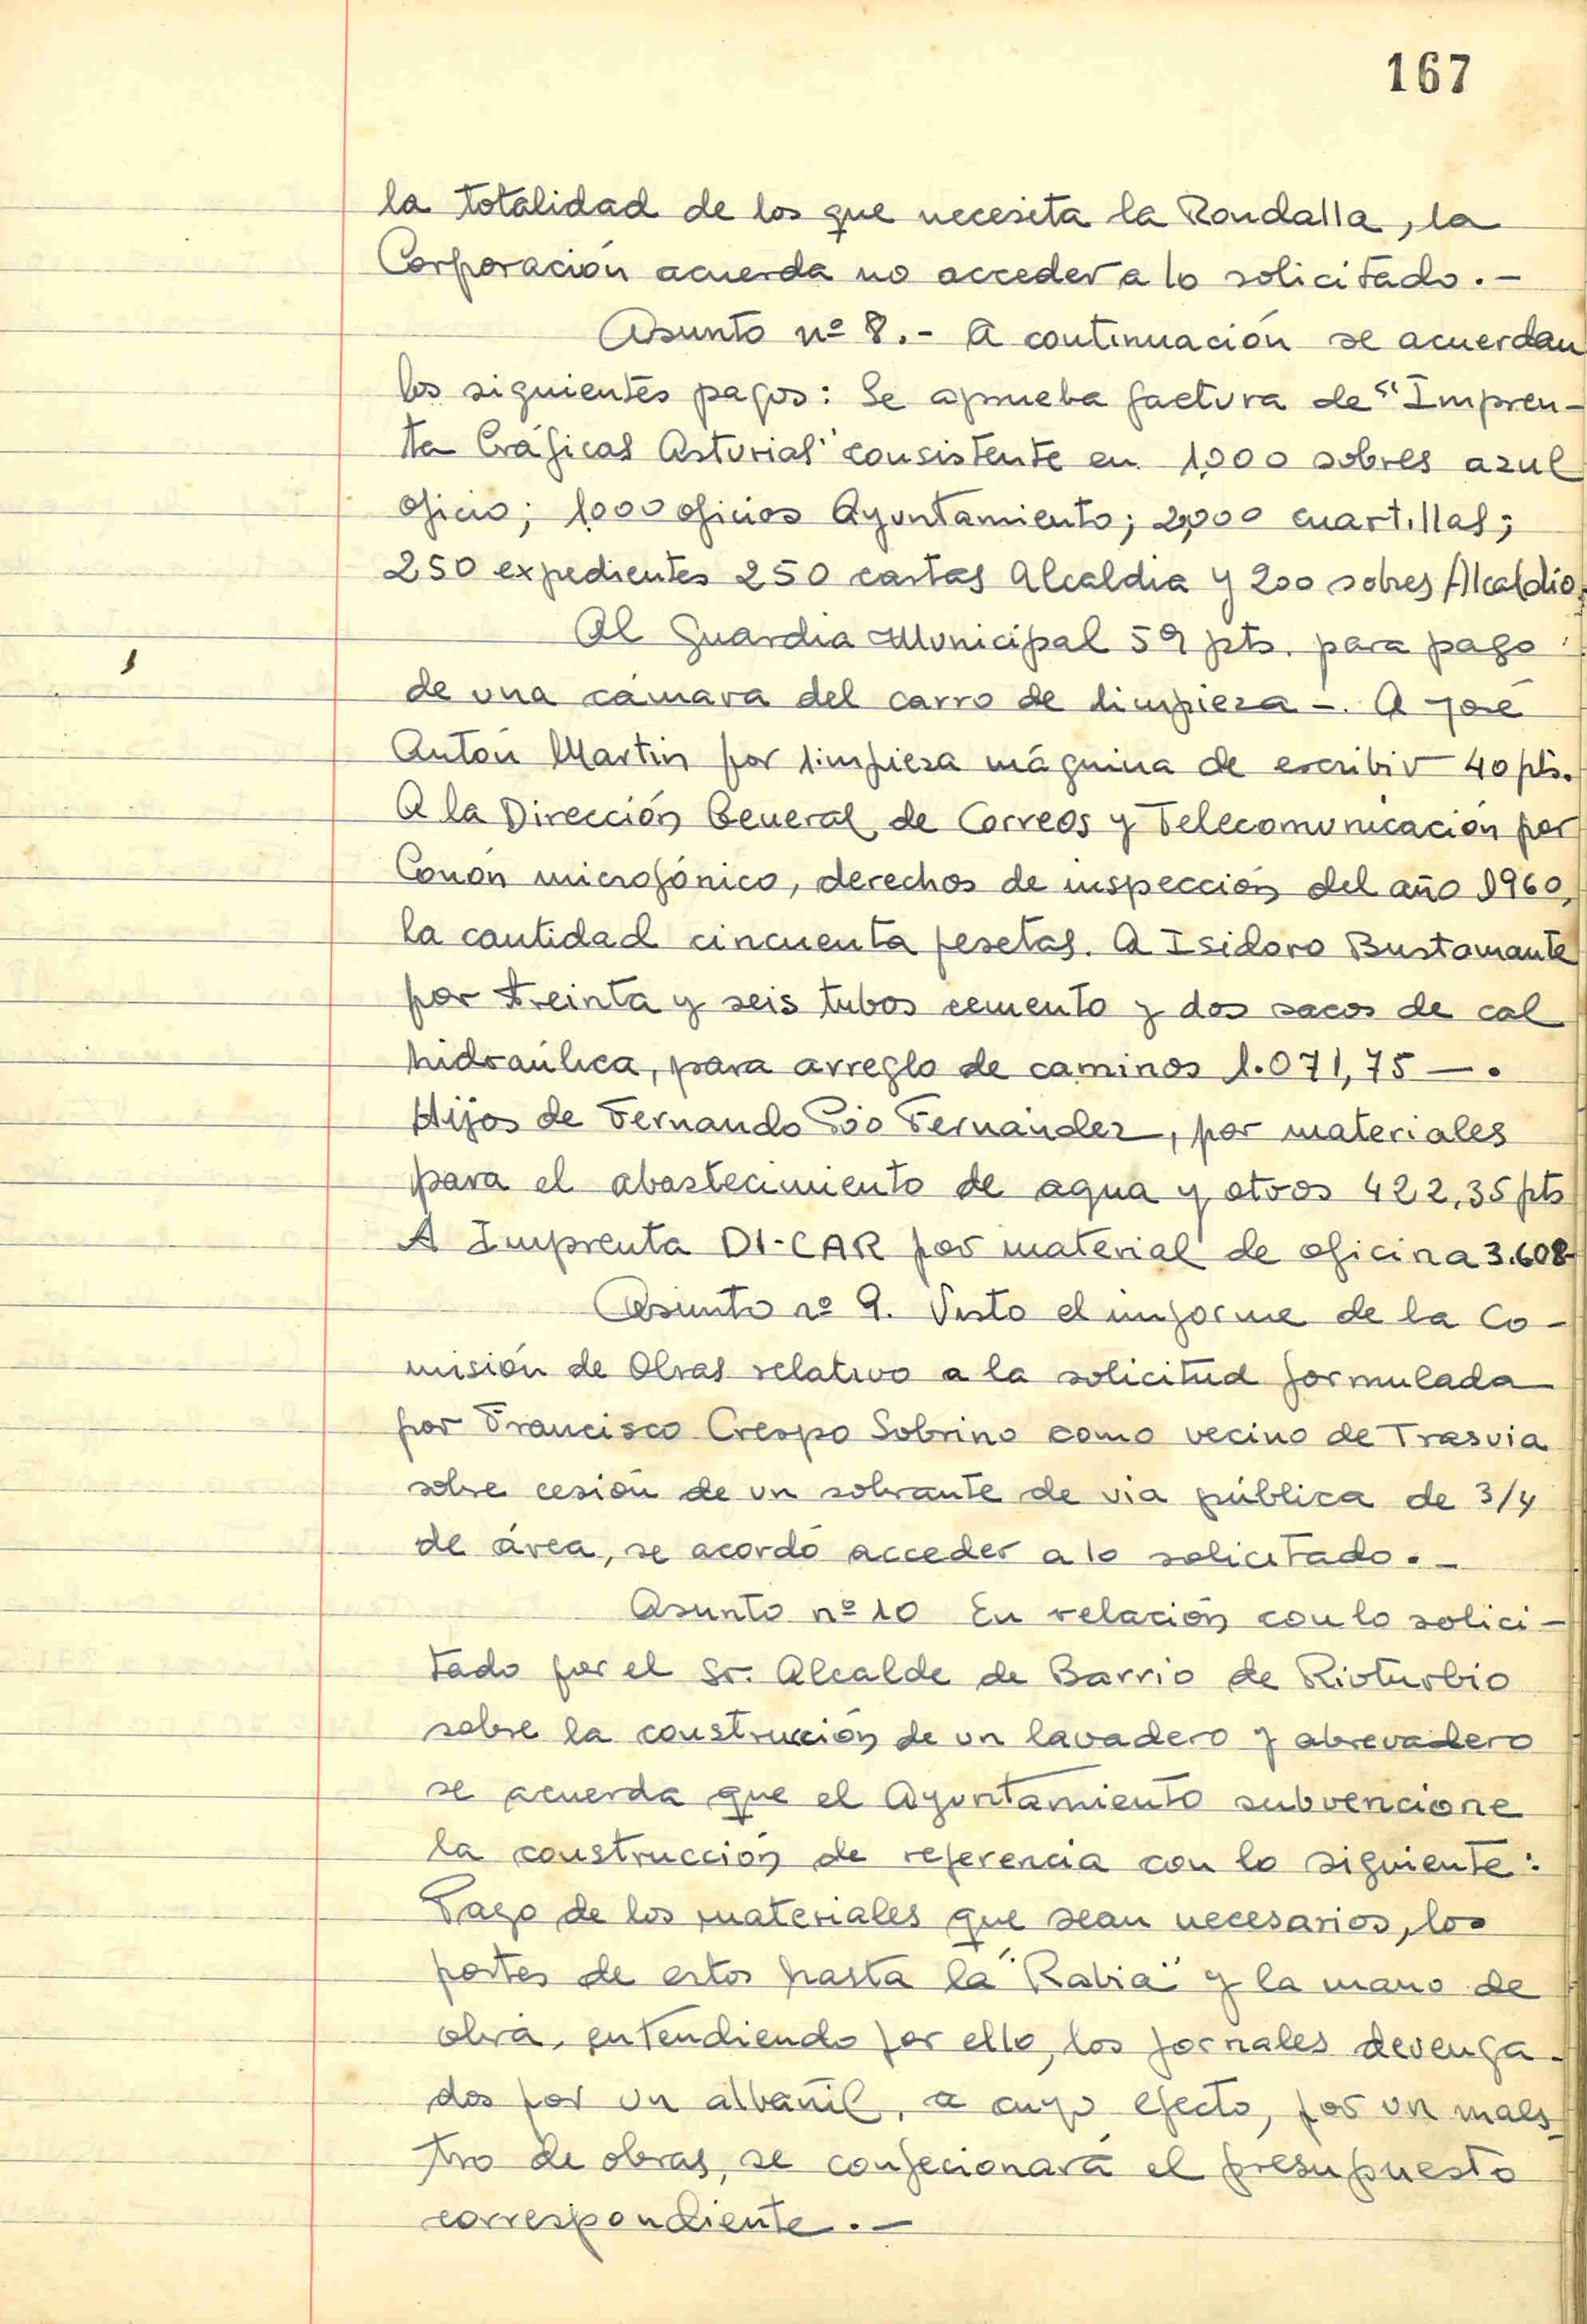 167
la totalidad de los que necesita la Rondalla, la
Corporación acuerda no acceder a lo solicitado.-
Asunto nº 8.- A continuación se acuerdan
los siguientes pagos: Se aprueba factura de "Impren-
ta Gráficas Asturias" consistente en 1,000 sobres azul
oficio; 1,000 oficios Ayuntamiento; 2,000 cuartillas;
250 expedientes 250 cartas Alcaldia y 200 sobres Alcaldia.
Al Guardia Municipal 59 pts. para pago
de una cámara del carro de limpieza -. A José
Antón Martin por limpieza máquina de escribir 40 pts.
A la Dirección General de Correos y Telecomunicación por
Canon microfónico, derechos de inspección del año 1960,
la cantidad cincuenta pesetas. A Isidoro Bustamante
por treinta y seis tubos cemento y dos sacos de cal
hidraúlica, para arreglo de caminos 1.071,75 -.
Hijos de Fernando Pío Fernández, por materiales
para el abastecimiento de agua y otros 422,35 pts
A Imprenta DI-CAR por material de oficina 3.608-
Asunto nº 9. Visto el informe de la Co-
misión de Obras relativo a la solicitud formulada
por Francisco Crespo Sobrino como vecino de Trasvia
sobre cesión de un sobrante de via pública de 3/4
de área, se acordó acceder a lo solicitado.-
Asunto nº 10 En relación con lo solici-
tado por el Sr. Alcalde de Barrio de Rioturbio
sobre la construcción de un lavadero y abrevadero
se acuerda que el Ayuntamiento subvencione
la construcción de referencia con lo siguiente:
Pago de los materiales que sean necesarios, los
portes de estos hasta la "Rabia" y la mano de
obra, entendiendo por ello, los jornales devenga-
dos por un albañil, a cuyo efecto, por un maes-
tro de obras, se confecionará el presupuesto
correspondiente.-